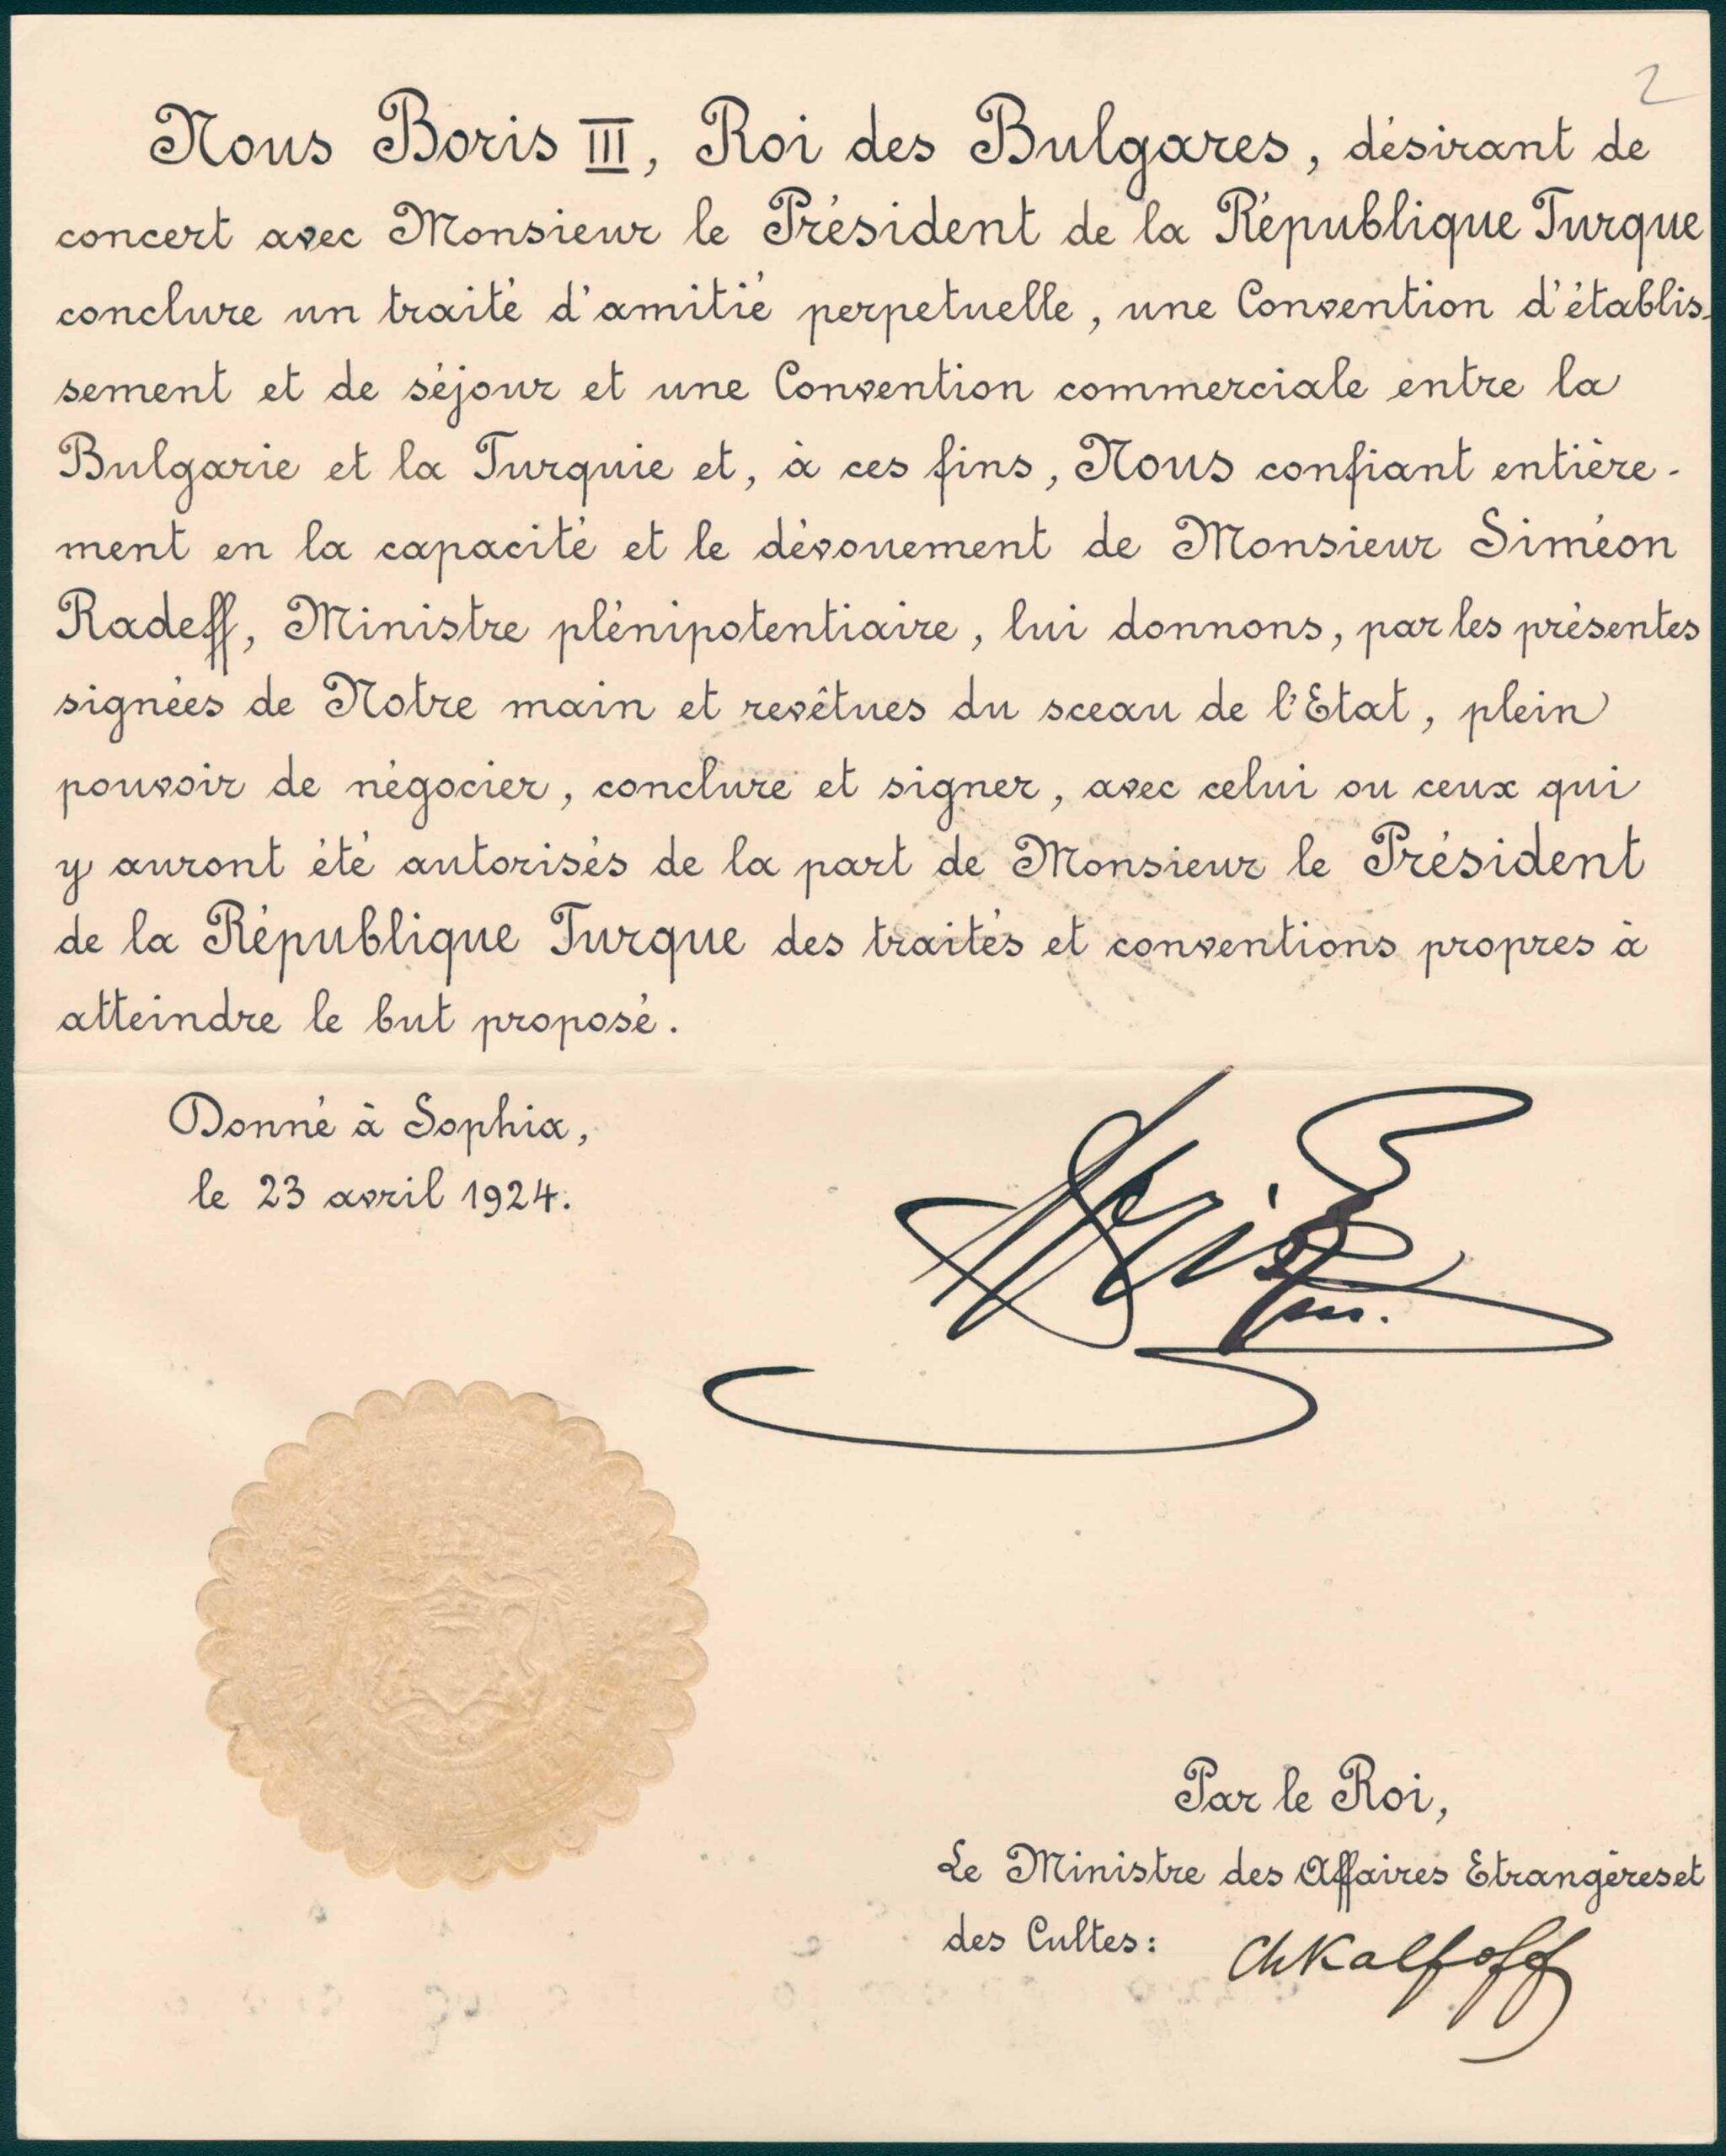 2
Nous Boris III, Roi des Bulgares, désirant de
concert avec Monsieur le Président de la République Turque
conclure un traité d'amitié perpetuelle, une Convention d'établis-
sement et de séjour et une Convention commerciale entre la
Bulgarie et la Turquie et, à ces fins, Nous confiant entière-
ment en la capacité et le dévouement de Monsieur Siméon
Radeff, Ministre plénipotentiaire, lui donnons, par les présentes
signées de Notre main et revêtues du sceau de l'Etat, plein
pouvoir de négocier, conclure et signer, avec celui ou ceux qui
y auront été autorisés de la part de Monsieur le Président
de la République Turque des traités et conventions propres à
atteindre le but proposé.
Donné à Sophia,
le 23 avril 1924.
Boris
Par le Roi,
Le Ministre des Affaires Etrangères et
des Cultes: Ch Kalfoff